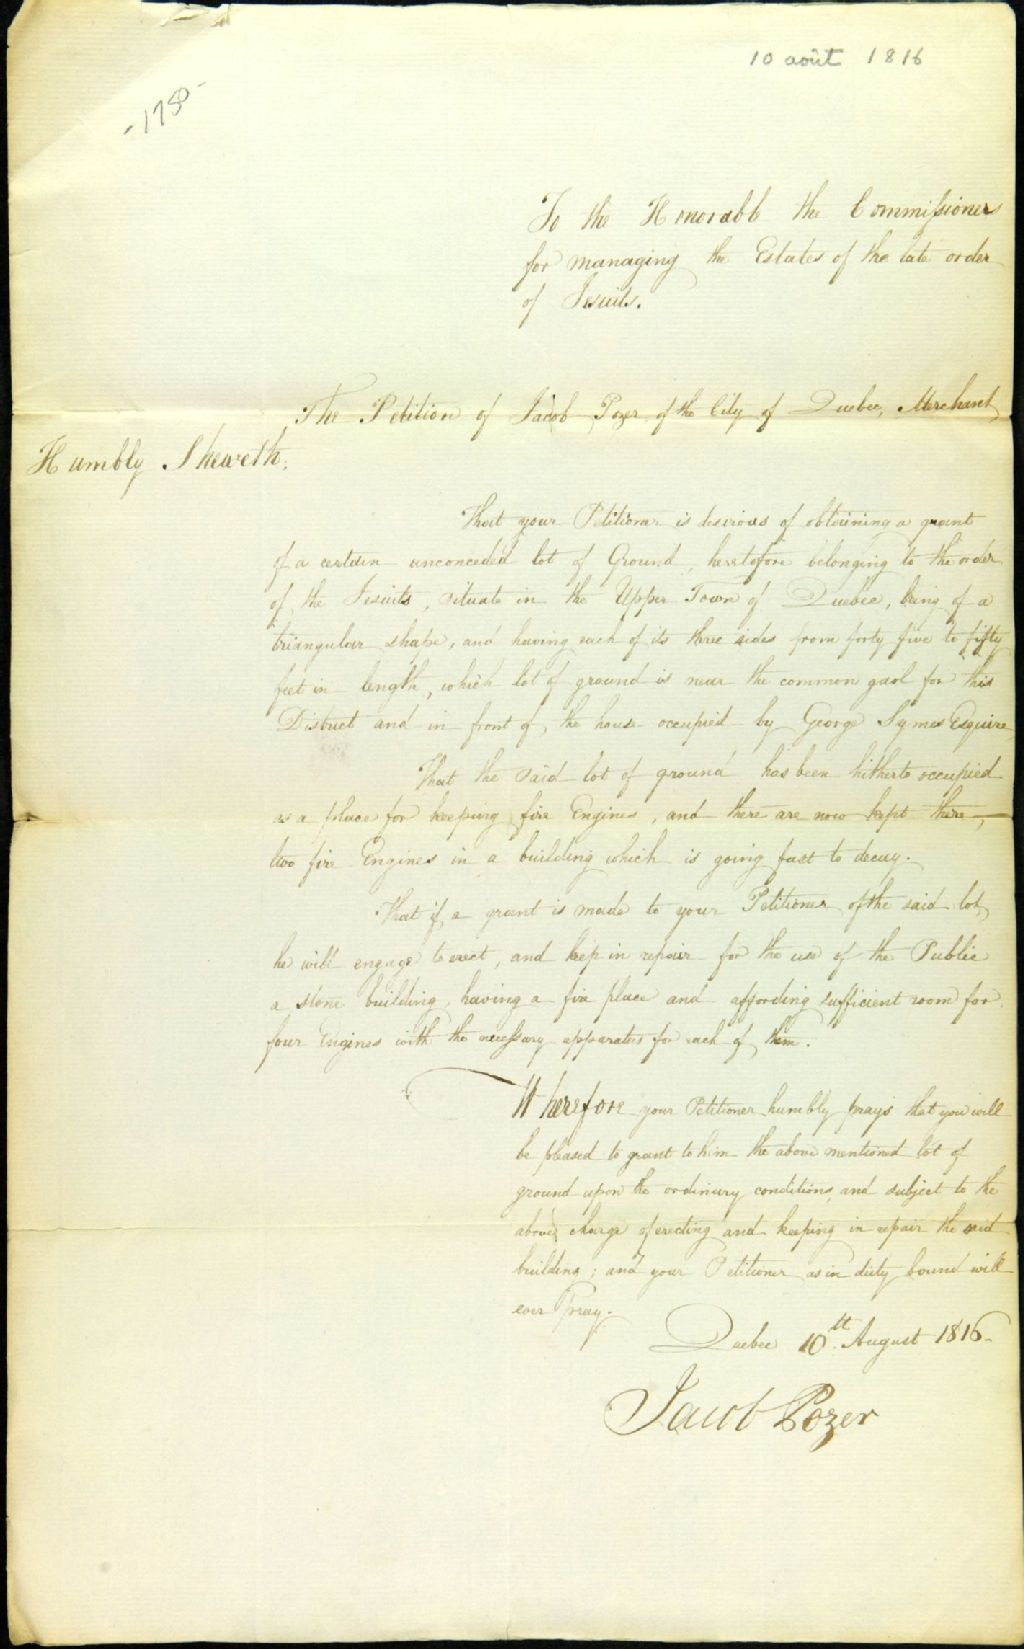 10 août 1816
-1750-
To the Honorable the Commissioners
for managing the Estates of the late order
of Jesuits.
The Petition of Jacob Pozer, of the City of Quebec, Merchant,
Humbly Sheweth;
That your Petitioner is desirous of obtaining a grant
of a certain unconceded lot of Ground, heretofore belonging to the order
of the Jesuits, situate in the Upper Town of Quebec, being of a
triangular shape, and having each of its three sides from forty five to fifty
feet in length, which lot of ground is near the common gaol for this
District and in front of the house occupied by George Symes Esquire
That the said lot of ground has been hitherto occupied
as a place for keeping fire Engines, and there are now kept there,
two fire Engines in a building which is going fast to decay.
That if a grant is made to your Petitioner of the said lot,
he will engage to erect, and keep in repair for the use of the Public
a stone building, having a fire place and affording sufficient room for
four Engines with the necessary apparatus for each of them.
Wherefore your Petitioner humbly prays that you will
be pleased to grant to him the above mentioned lot of
ground upon the ordinary conditions, and subject to the
above charge of erecting and keeping in repair the said
building; and your Petitioner as in duty bound will
ever Pray.
Quebec 10th August 1816.
Jacob Pozer